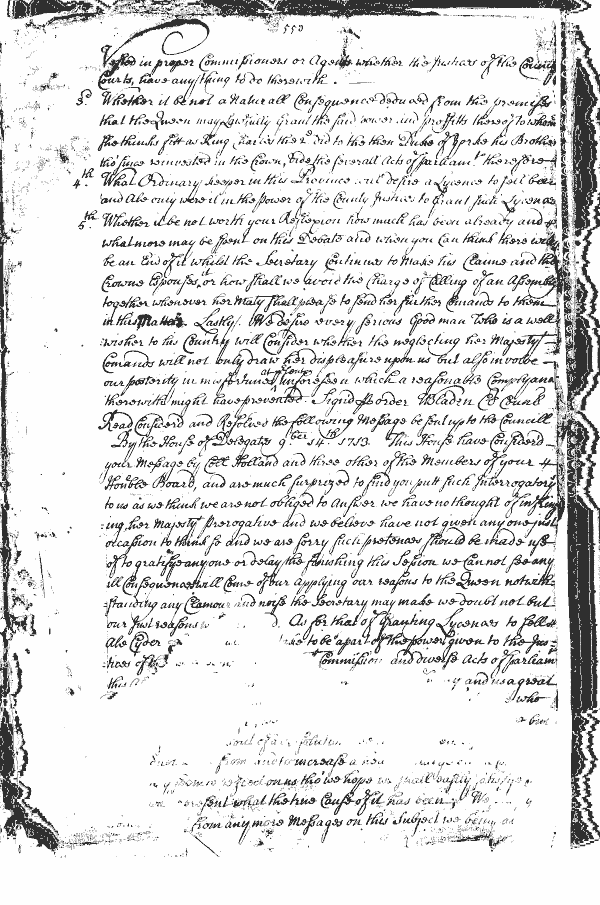 553
Vested in proper Commissioners or Agents whether the Justices of the County
Courts, have any thing to do therewith.
3d Whether it be not a Naturall Consequence deduced from the premises
that the Queen may Lawfully Grant the said power and proffitts thereof to whom
she thinks fitt as King Charles the 2d did to the then Duke of Yorke his Brother
tho since reinvested in the Crown, Vide the severall Acts of parliamt therefore
4th What Ordinary keeper in this Province will desire a Lycence to sell beer
and Ale only were it in the power of the County Justices to Grant such Lycences
5th Whether it be not worth your Reflection how much has been already and
what more may be spent on this Debate and when you can think there will
be an End of it whilst the Secretary Continues to make his Claime and the
Crowne Espouses it, or how shall we avoid the Charge of Calling of an Assembly
together whenever her Maty shall please to send her further Comands to them
in this Matter. Lastly. We desire every serious Good man who is a well
wisher to his Country will Consider whether the neglecting her Majestys
Comands will not only draw her displeasure upon us but also involve
our posterity in misfortunes at present unforeseen which a reasonable Complyance
therewith might have prevented. Signd p order W Bladen Cl Council
Read Considerd and Resolves the following Message be sent up to the Councill
By the House of Delegates 9ber 14th 1713. This House have Considerd
your Message by Coll Holland and three other of the Members of your
Honble Board, and are much surprized to find you put such Interrogatorys
to us as we think we are not obliged to Answer we have no thought of infring
ing her Majestys Prerogative and we believe have not given any one just
occasion to think so and we are sorry such pretences should be made use
of to gratifie any one or delay the finishing this Session we cannot see any
ill Consequences will Come of our Applying our reasons to the Queen notwith
standing any Clamour and noise the Secretary may make we doubt not but
our Just reasons As for that of Granting Lycences to sell
Ale Cyder to be a part of the power given to the Jus
tices of the Commission and diverse Acts of parliam
this and us a great
who
been
from and to increase a
reflect on us tho we hope we shall easily
what the true Cause of it has been We
from any more Messages on this Subject we being